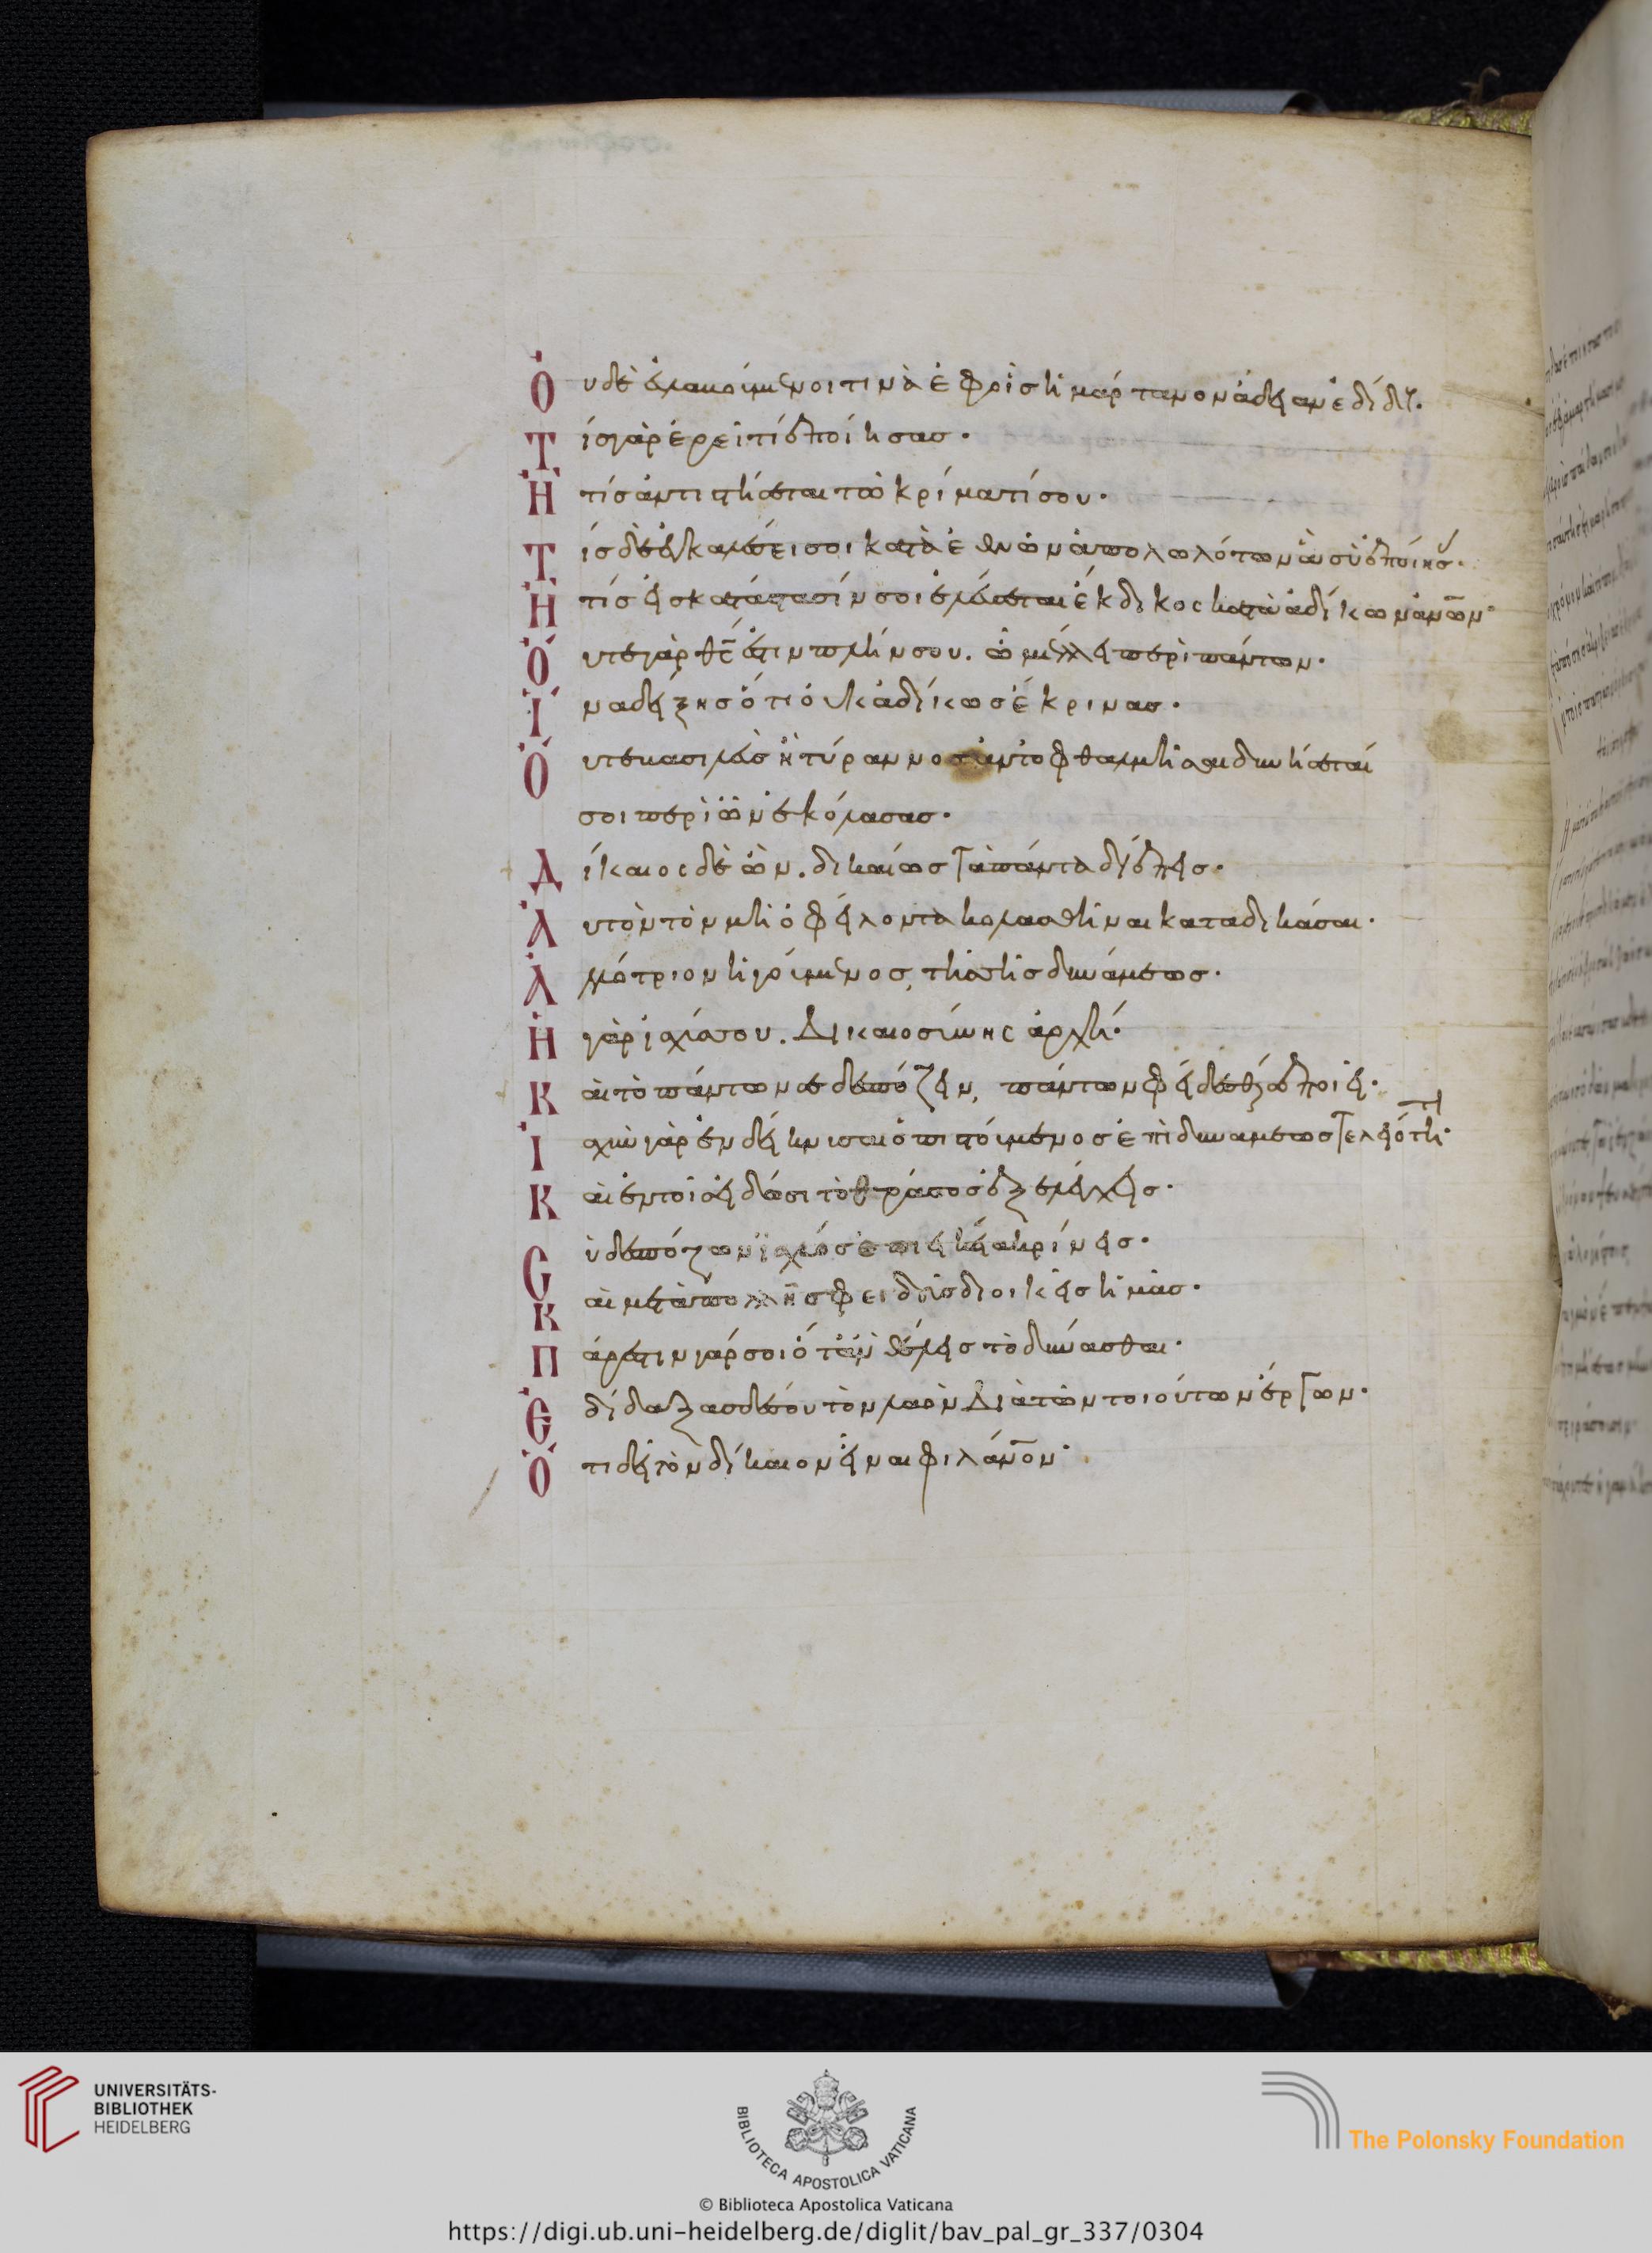 Οὐδὲ εὐλαβούμενός τινὰ ἐφ' οἷς ἡμάρτανον ἄδειαν ἐδίδους·
Τίς γὰρ ἐρεῖ τί ἐποίησας·
Ἢ τίς ἀντιστήσεται τῷ κρίματί σου·
Τίς δὲ ἐγκαλέσει σοι κατὰ ἐθνῶν ἀπολωλότων ἃ σὺ ἐποίησας·
Ἢ τίς εἰς κατάστασίν σοι ἐλεύσεται ἔκδικος κατὰ ἀδίκων ἀνων·
Οὔτε γὰρ θς ἐστιν πλὴν σου. ᾧ μέλλει περὶ πάντων·
Ἵνα δείξης ὅτι οὐκ ἀδίκως ἔκρινας·
Οὔτε βασιλεὺς ἢ τύραννος ἀντοφθαλμῆσαι δυνήσεταί
σοι περὶ ὧν ἐκόλασας·
Δίκαιος δὲ ὢν. δικαίως τὰ πάντα διέπεις·
Αὐτὸν τὸν μὴ ὀφείλοντα κολασθῆναι καταδικάσαι·
Ἀλλότριον ἡγούμενος, τῆς σῆς δυνάμεως·
Ἡ γὰρ ἰσχύς σου. Δικαιοσύνης ἀρχή·
Καὶ τὸ πάντων σε δεσπόζειν, πάντων φείδεσθαί σε ποιεῖ·
Ἰσχὺν γὰρ ἐνδείκνυσαι ὁ πιστούμενος ἐπὶ δυνάμεως τελειότητι·
Καὶ ἐν τοῖς εἰδόσι τὸ θράσος ἐξελέγχεις·
Cὺ δεσπόζων ἰσχύος ἐπιεικεία κρίνεις·
Καὶ μετὰ πολλῆς φειδοῦς διοικεῖς ἡμᾶς·
Πάρεστιν γάρ σοι ὅτἂν θέλεις τὸ δύνασθαι·
Ἐδίδαξας δέ σου τὸν λαὸν Διὰ τῶν τοιούτων ἔργων·
Ὅτι δεῖ τὸν δίκαιον εἶναι φιλάνον·
UNIVERSITÄTS-
BIBLIOTHEK
HEIDELBERG
BIBLIOTECA APOSTOLICA VATICANA
The Polonsky Foundation
© Biblioteca Apostolica Vaticana
https://digi.ub.uni-heidelberg.de/diglit/bav_pal_gr_337/0304